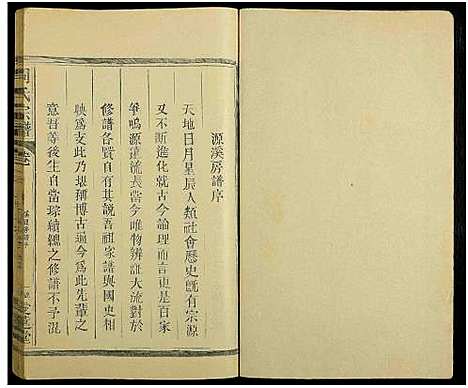 源溪房譜序
天地日月星辰人類社會歷史既有宗源
又不斷進化就古今論理而言更是百家
爭鳴源遠流長當今唯物辨證大流對於
修譜各賢自有其說吾祖家譜與國史相
映爲支此乃堪稱博古通今爲此先輩之
意吾等後生自當琮續總之修譜不予混
氏宗譜